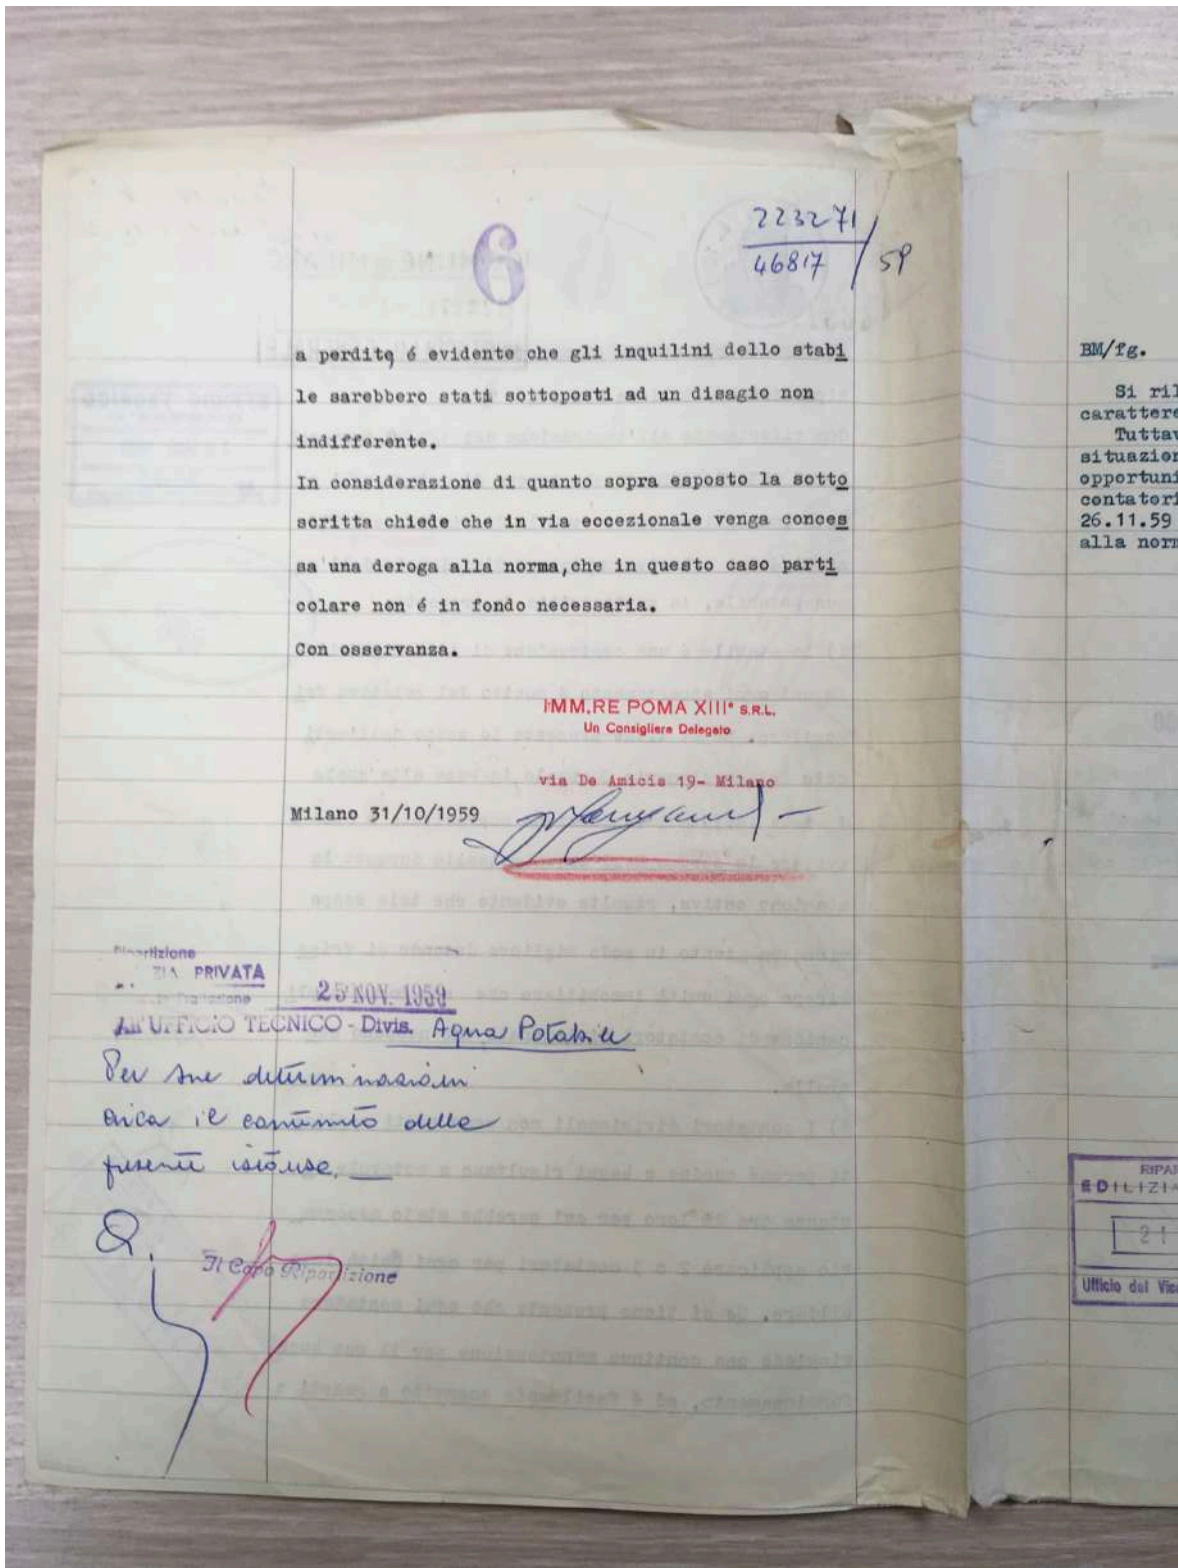 6
223271
46817 / 59
a perdite é evidente che gli inquilini dello stabi
le sarebbero stati sottoposti ad un disagio non
indifferente.
In considerazione di quanto sopra esposto la sotto
scritta chiede che in via eccezionale venga conces
sa una deroga alla norma,che in questo caso parti
colare non é in fondo necessaria.
Con osservanza.
IMM.RE POMA XIII° S.R.L.
Un Consigliere Delegato
via De Amicis 19- Milano
Milano 31/10/1959
Ripartizione
PRIVATA
25 NOV. 1959
All'UFFICIO TECNICO - Divis. Aqua Potabile
Per sue determinazioni
circa il contenuto della
presente istanza.
Il Capo Ripartizione
BM/fg.
Si ril
carattere
Tuttav
situazion
opportuni
contatori
26.11.59
alla norm
RIPAR
EDILIZIA
21
Ufficio del Vice